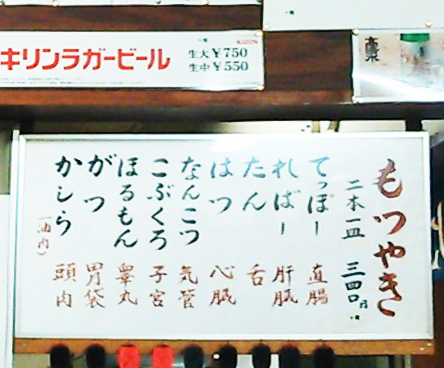 キリンラガービール
生大￥750
生中￥550
もつやき
二本一皿 三四〇円
てっぽー 直腸
ればー 肝臓
たん 舌
はつ 心臓
なんこつ 気管
こぶくろ 子宮
ほるもん 睾丸
がつ 胃袋
かしら 頭肉